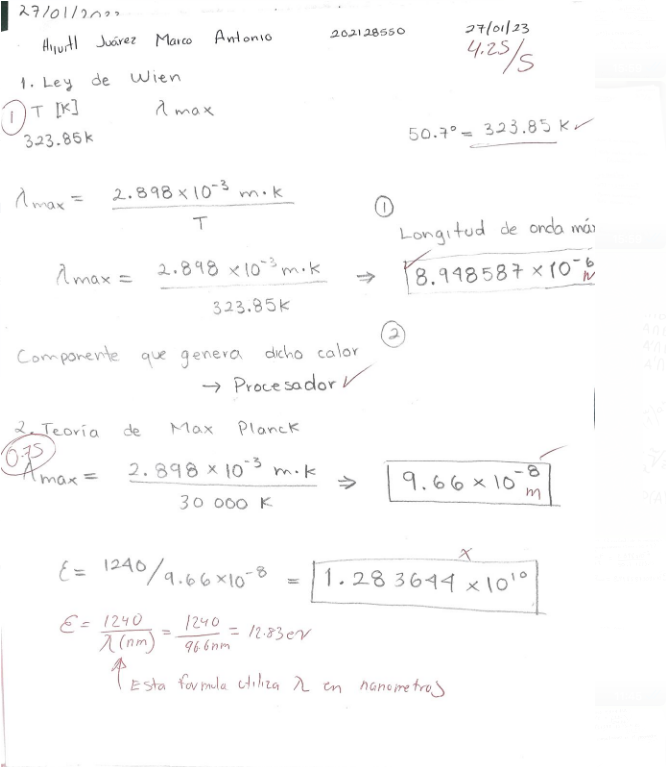 27/01/2022
Juárez Marco Antonio 202128550 27/01/23
4.25/5
1. Ley de Wien
① T [K] λ max
323.85k 50.7° = 323.85 K ✓
λmax = 2.898 × 10⁻³ m·k / T
①
Longitud de onda máx
λmax = 2.898 × 10⁻³ m·k / 323.85k ⇒ 8.948587 × 10⁻⁶
②
Componente que genera dicho calor
→ Procesador ✓
2. Teoría de Max Planck
0.75
λmax = 2.898 × 10⁻³ m·k / 30 000 K ⇒ 9.66 × 10⁻⁸ m ✓
x
E = 1240/9.66×10⁻⁸ = 1.283644 × 10¹⁰
E = 1240 / λ(nm) = 1240 / 96.6nm = 12.83 eV
↑ Esta formula utiliza λ en nanometros